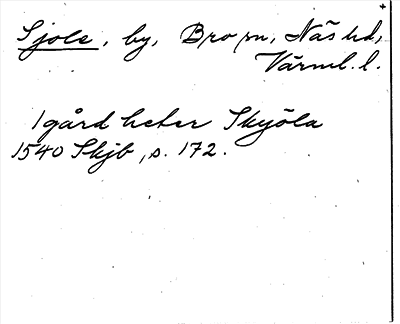 Sjole, by, Bro sn, Näs hd,
Värml. l.
1 gård heter Skyöla
1540 Skjb, s. 172.